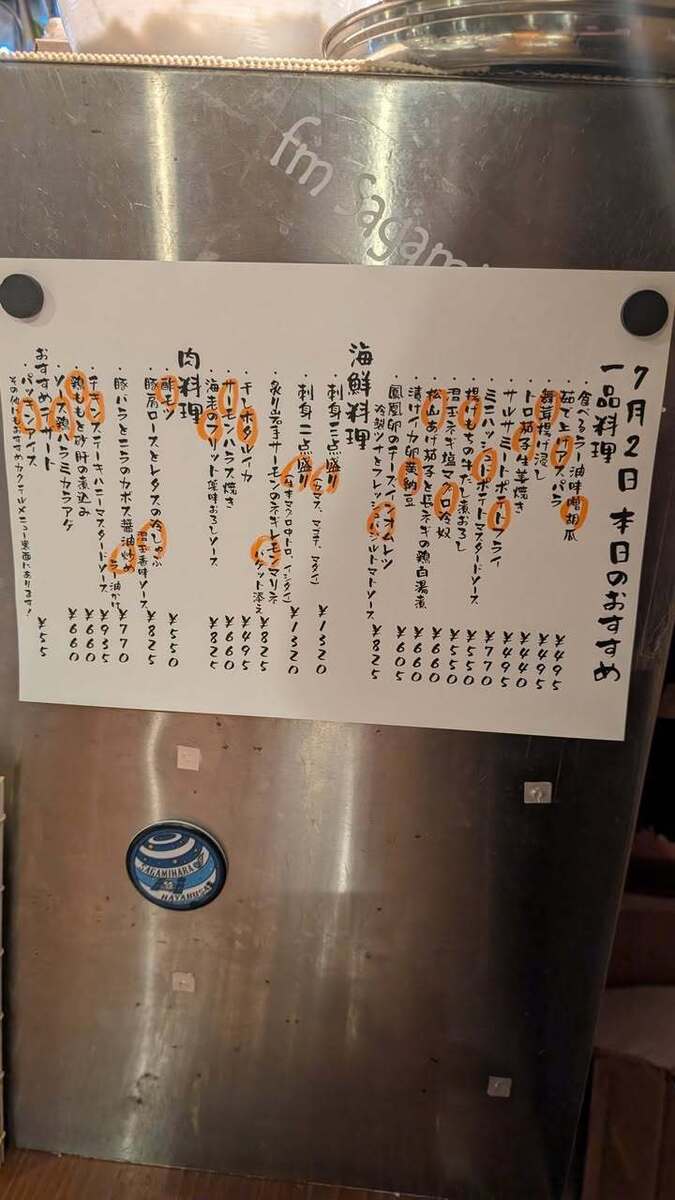 fm Sagami
7月2日 本日のおすすめ
一品料理
・食べるラー油味噌胡瓜 ¥495
・茹で上げアスパラ ¥495
・舞茸揚げ浸し ¥495
・トロ茄子生姜焼き ¥440
・サルサミートポテトフライ ¥495
・ミニハッシュドポテトマスタードソース ¥770
・揚げもちの牛だし煮おろし ¥550
・沼玉ネギ塩マグロ冷奴 ¥550
・松山あげ茄子と長ネギの鶏白湯煮 ¥660
・漬けイカ卵黄納豆 ¥660
・鳳凰卵のチーズインオムレツ ¥605
・冷製ツナとフレッシュバジルトマトソース ¥825
海鮮料理
・刺身三点盛り(カマス、マコチ、マダイ) ¥1320
・刺身二点盛り(本マグロ中トロ、イシダイ) ¥1320
・炙り岩手サーモンのネギレモンマリネ
バゲット添え ¥825
・干しホタルイカ ¥495
・サーモンハラス焼き ¥660
・海老のフリット薬味おろしソース ¥825
肉料理
・酢モツ ¥550
・豚肩ロースとレタスの冷しゃぶ
沼玉香味ソース ¥825
・豚バラとニラのカボス醤油炒め
ラー油がけ ¥770
・チキンステーキハニーマスタードソース ¥935
・鶏ももと砂肝の煮込み ¥660
・ソース鶏ハラミカラアゲ ¥660
おすすめデザート
・パッションアイス ¥55
その他おすすめカクテルメニュー裏面にあります!
SAGAMIHARA
HAYABUSA